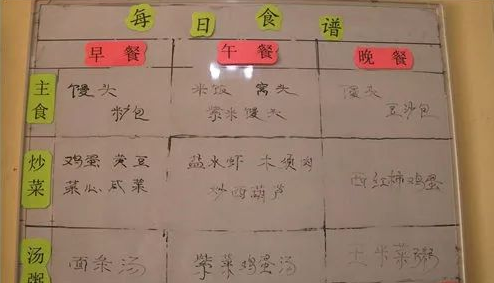 每日食谱
早餐 午餐 晚餐
主食 馒头 米饭 窝头 馒头
包 紫米馒头 豆沙包
炒菜 鸡蛋 黄豆 盐水虾 木须肉 西红柿鸡蛋
菜瓜 咸菜 炒西葫芦
汤粥 面条汤 紫菜鸡蛋汤 玉米菜粥